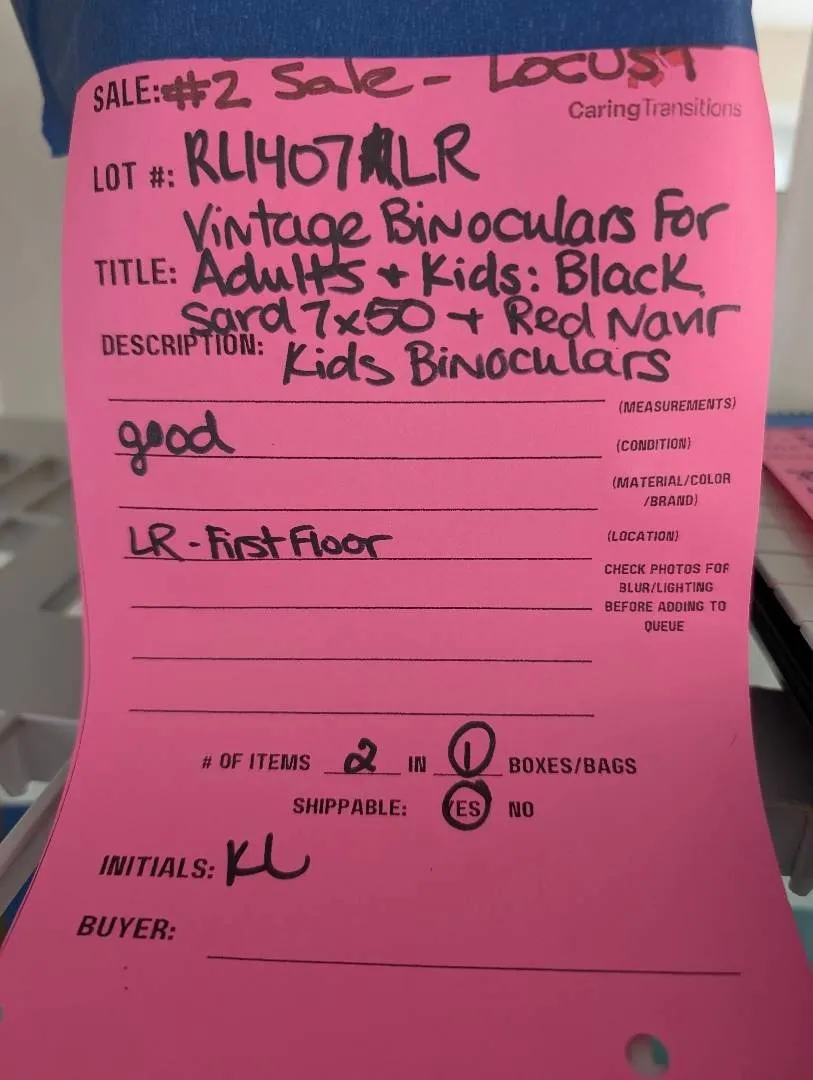 SALE: #2 Sale - LOCUST
CaringTransitions
LOT #: RL1407 LR
Vintage Binoculars For
TITLE: Adults + Kids: Black
Sard 7x50 + Red Navir
DESCRIPTION: Kids Binoculars
(MEASUREMENTS)
good (CONDITION)
(MATERIAL/COLOR
/BRAND)
LR - First Floor (LOCATION)
CHECK PHOTOS FOR
BLUR/LIGHTING
BEFORE ADDING TO
QUEUE
# OF ITEMS 2 IN 1 BOXES/BAGS
SHIPPABLE: YES NO
INITIALS: KL
BUYER: